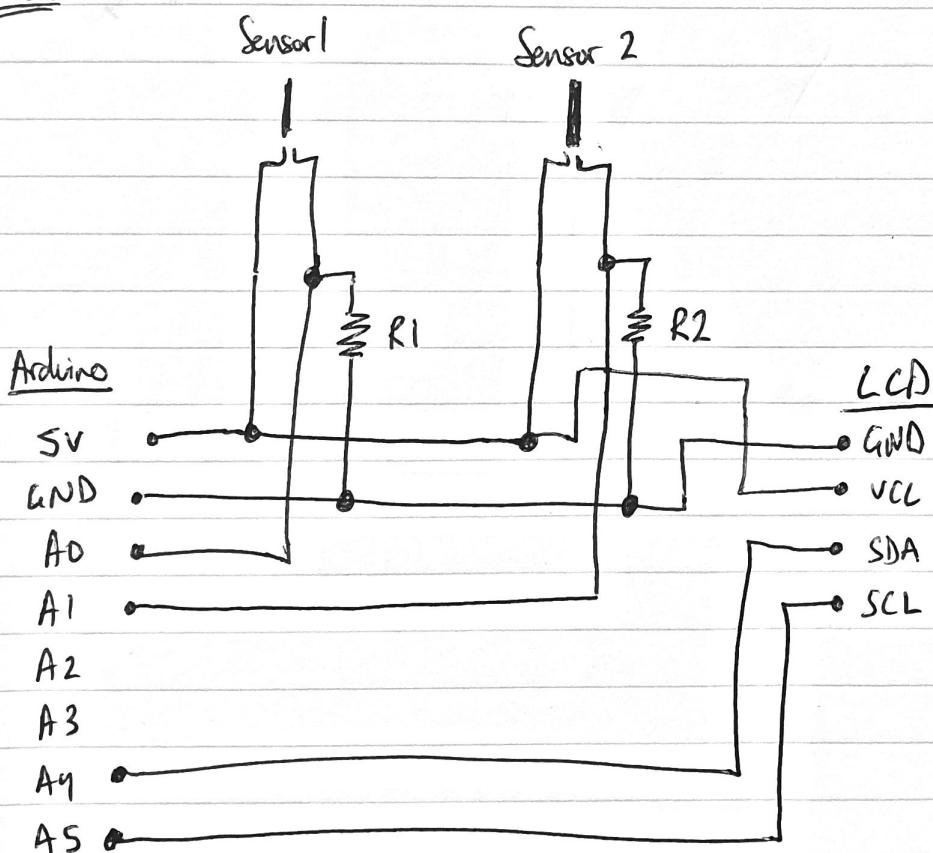 Sensor 1
Sensor 2
R1
R2
Arduino
5V
GND
A0
A1
A2
A3
A4
A5
LCD
GND
VCL
SDA
SCL